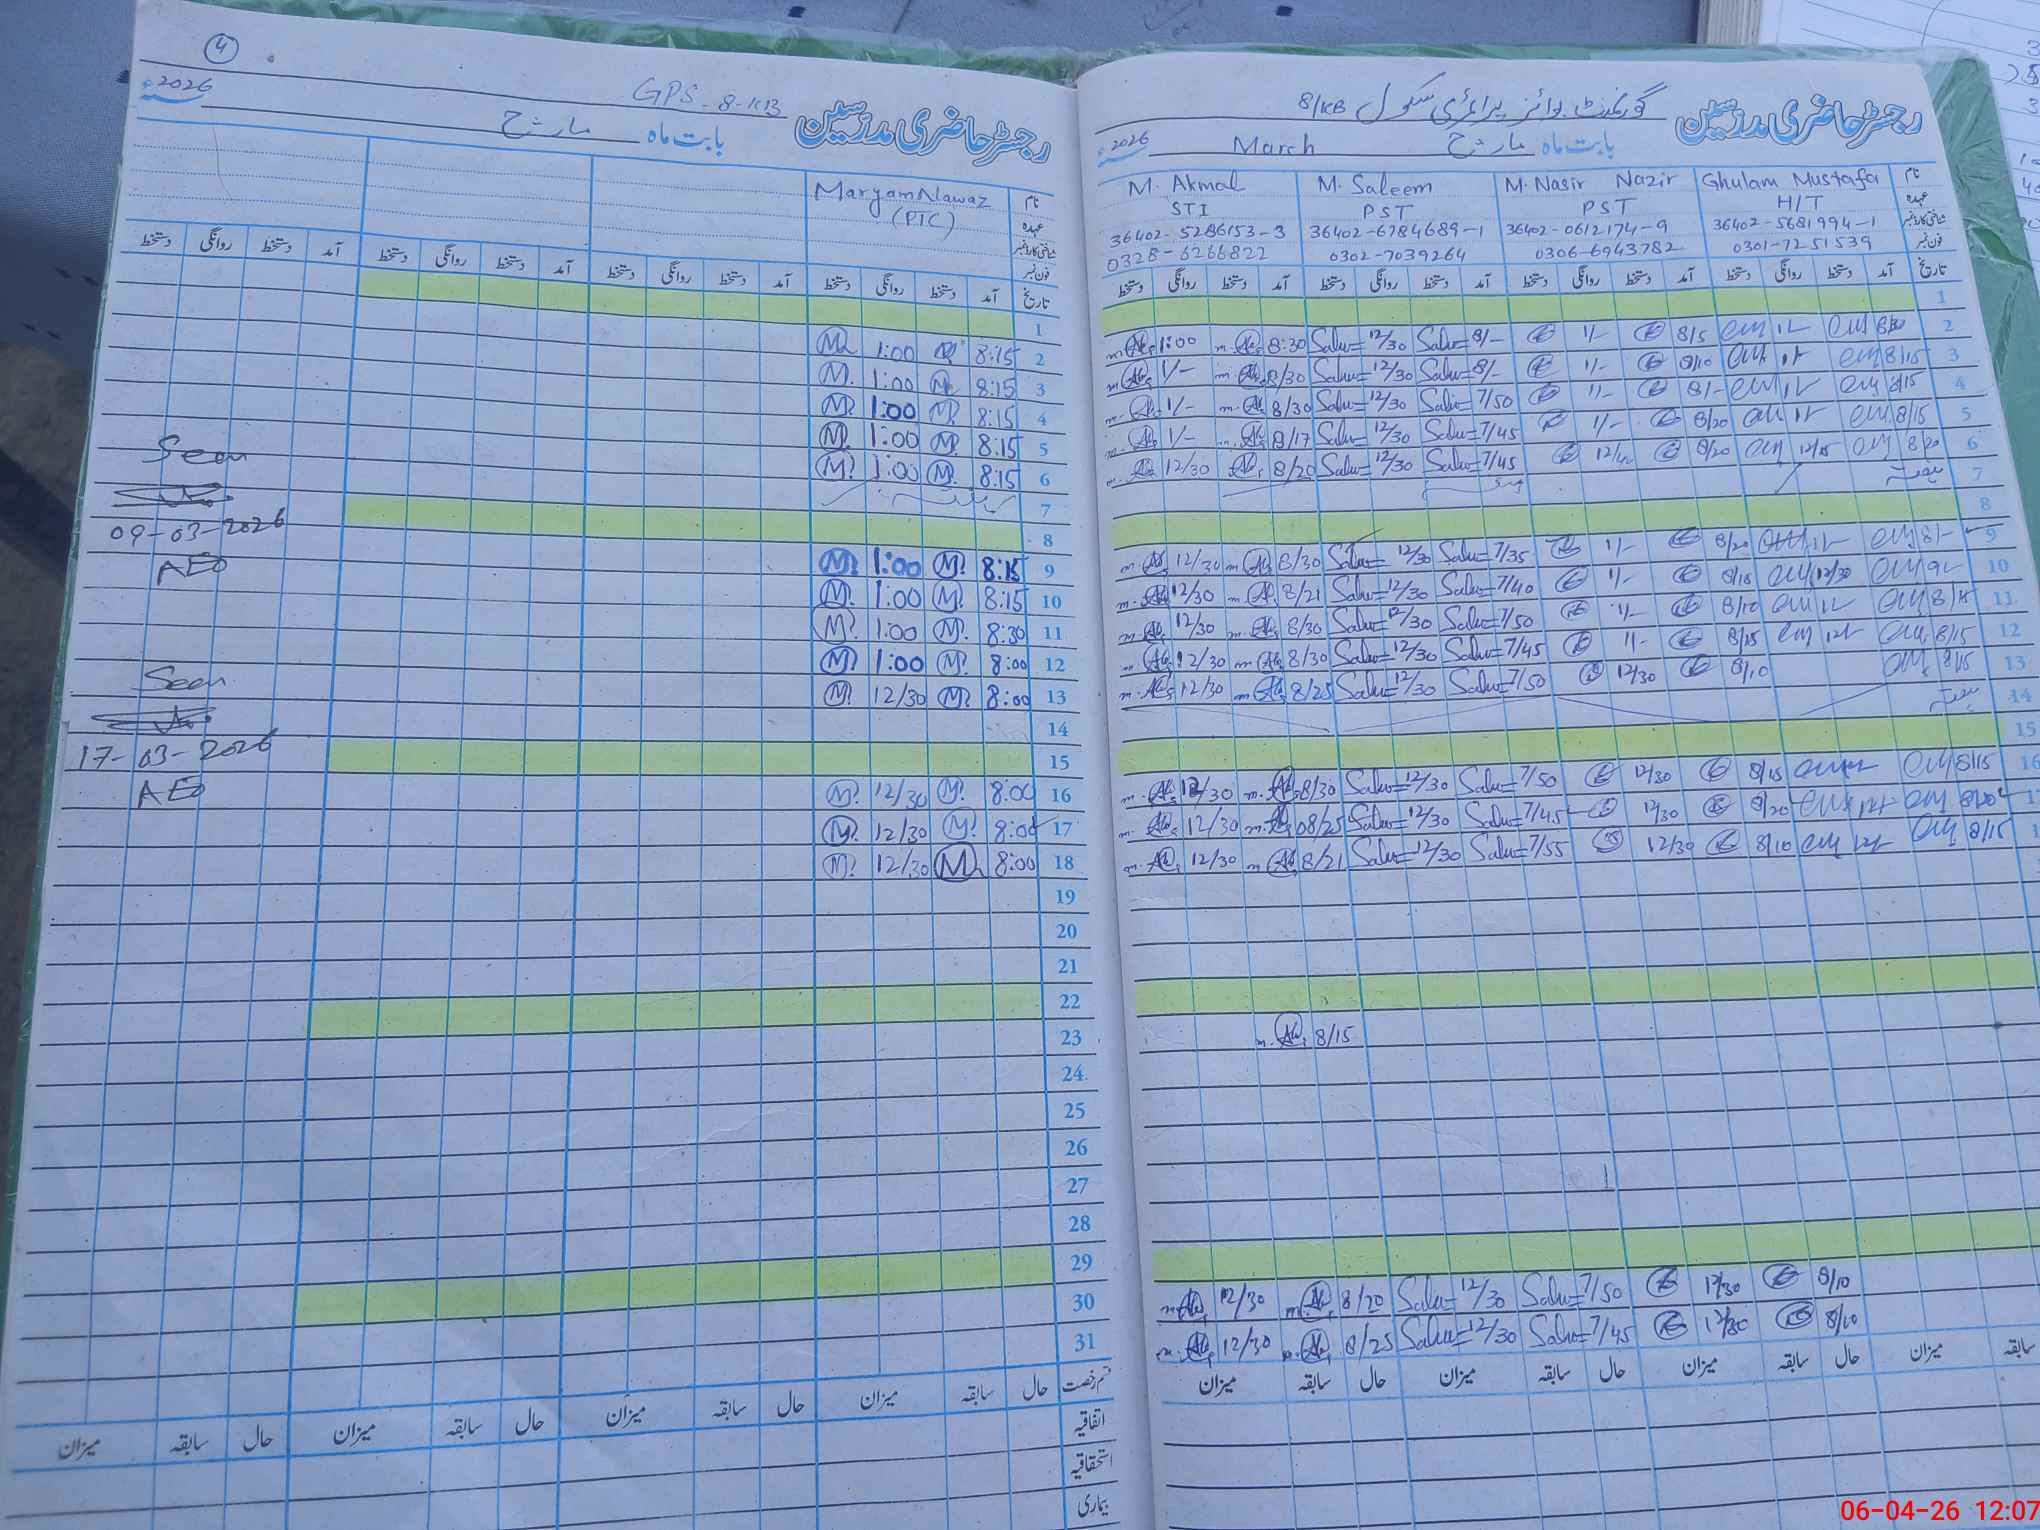 4
2026ء
GPS-8-KB
رجسٹر حاضری مدرسین
بابت ماہ مارچ
نام
عہدہ
شناختی کارڈ نمبر
فون نمبر
Maryam Nawaz
(PTC)
تاریخ آمد دستخط روانگی دستخط آمد دستخط روانگی دستخط آمد دستخط روانگی دستخط آمد دستخط روانگی دستخط
1
2 8:15 1:00
3 8:15 1:00
4 8:15 1:00
5 8:15 1:00
6 8:15 1:00
7
8
9 8:15 1:00
10 8:15 1:00
11 8:30 1:00
12 8:00 1:00
13 8:00 12/30
14
15
16 8:00 12/30
17 8:00 12/30
18 8:00 12/30
19
20
21
22
23
24
25
26
27
28
29
30
31
Seen
09-03-2026
AEO
Seen
17-03-2026
AEO
قسم رخصت حال سابقہ میزان حال سابقہ میزان حال سابقہ میزان حال سابقہ میزان
اتفاقیہ
استحقاقیہ
بیماری
رجسٹر حاضری مدرسین
گورنمنٹ بوائز پرائمری سکول 8/KB
بابت ماہ مارچ March 2026ء
نام
عہدہ
شناختی کارڈ نمبر
فون نمبر
M. Akmal M. Saleem M. Nasir Nazir Ghulam Mustafa
STI PST PST H/T
36402-5286153-3 36402-6784689-1 36402-0612174-9 36402-5681994-1
0328-6266822 0302-7039264 0306-6943782 0301-7251539
تاریخ آمد دستخط روانگی دستخط آمد دستخط روانگی دستخط آمد دستخط روانگی دستخط آمد دستخط روانگی دستخط
1
2 8/5 1/- 8/- 12/30 8:30 1:00
3 8/15 8/10 1/- 8/- 12/30 8/30 1/-
4 8/15 8/- 1/- 7/50 12/30 8/30 1/-
5 8/15 8/20 1/- 7/45 12/30 8/17 1/-
6 8/20 12/15 8/20 7/45 12/30 8/20 12/30
7
8
9 8/- 8/20 1/- 7/35 12/30 8/30 12/30
10 12/30 8/15 1/- 7/40 12/30 8/21 12/30
11 8/10 1/- 7/50 12/30 8/30 12/30
12 8/15 8/15 1/- 7/45 12/30 8/30 12/30
13 8/15 8/10 12/30 7/50 12/30 8/25 12/30
14
15
16 8/15 8/15 12/30 7/50 12/30 8/30 12/30
8/20 8/20 12/30 7/45 12/30 08/25 12/30
8/15 8/10 12/30 7/55 12/30 8/21 12/30
8/15
8/10 12/30 7/50 12/30 8/20 12/30
8/10 12/30 7/45 12/30 8/25 12/30
سابقہ میزان حال سابقہ میزان حال سابقہ میزان حال سابقہ میزان
06-04-26 12:07